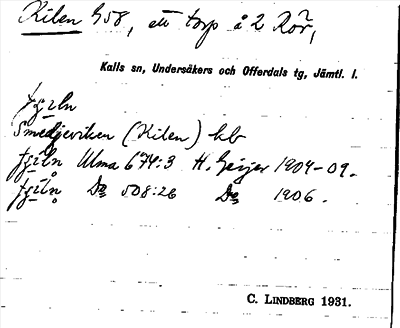 Kilen G58, ett torp å 2 Rör,
Kalls sn, Undersåkers och Offerdals tg, Jämtl. l.
Smedjeviken (Kilen) hb
Ulma 674:3 H. Geijer 1904-09.
Do 508:26 Do 1906.
C. LINDBERG 1931.